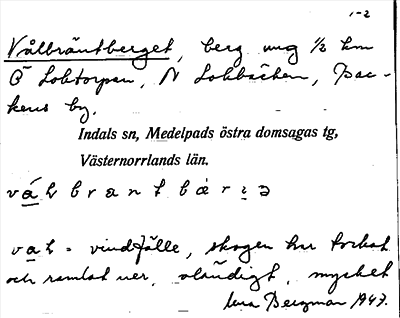 1-2
Vålbräntberget, berg ung ½ km
Ö Loktorpen, N Lokbäcken, Bac-
kens by.
Indals sn, Medelpads östra domsagas tg,
Västernorrlands län.
vál brant bàrıə
val = vindfälle, skogen har torkat
och ramlat ner, oländigt, mycket
Bergman 1947.